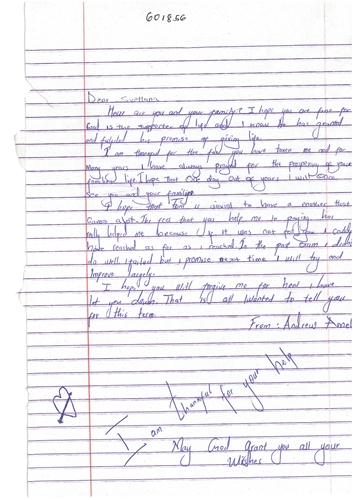 601856
Dear Svetlana
How are you and your family? I hope you are fine for
God is the supporter of life and I know he has granted
and fulfiled his promise of giving life.
I am thankful for the far you have taken me and for
Many years I have always prayed for the property of your
families life I hope that one day out of years I will come
see you and your families
I hope that this is to have a another that
comes a lot. The feel that you help me in paying has
really helped me because if it was not for you I couldn't
have reached as far as I reached. In the past exam I didn't
do well I failed but I promise next time I will try and
improve largely.
I hope you will forgive me for how I have
let you down. That is all I wanted to tell you
for this term.
From: Andrew
I am thankful for your help
May God grant you all your
Wishes